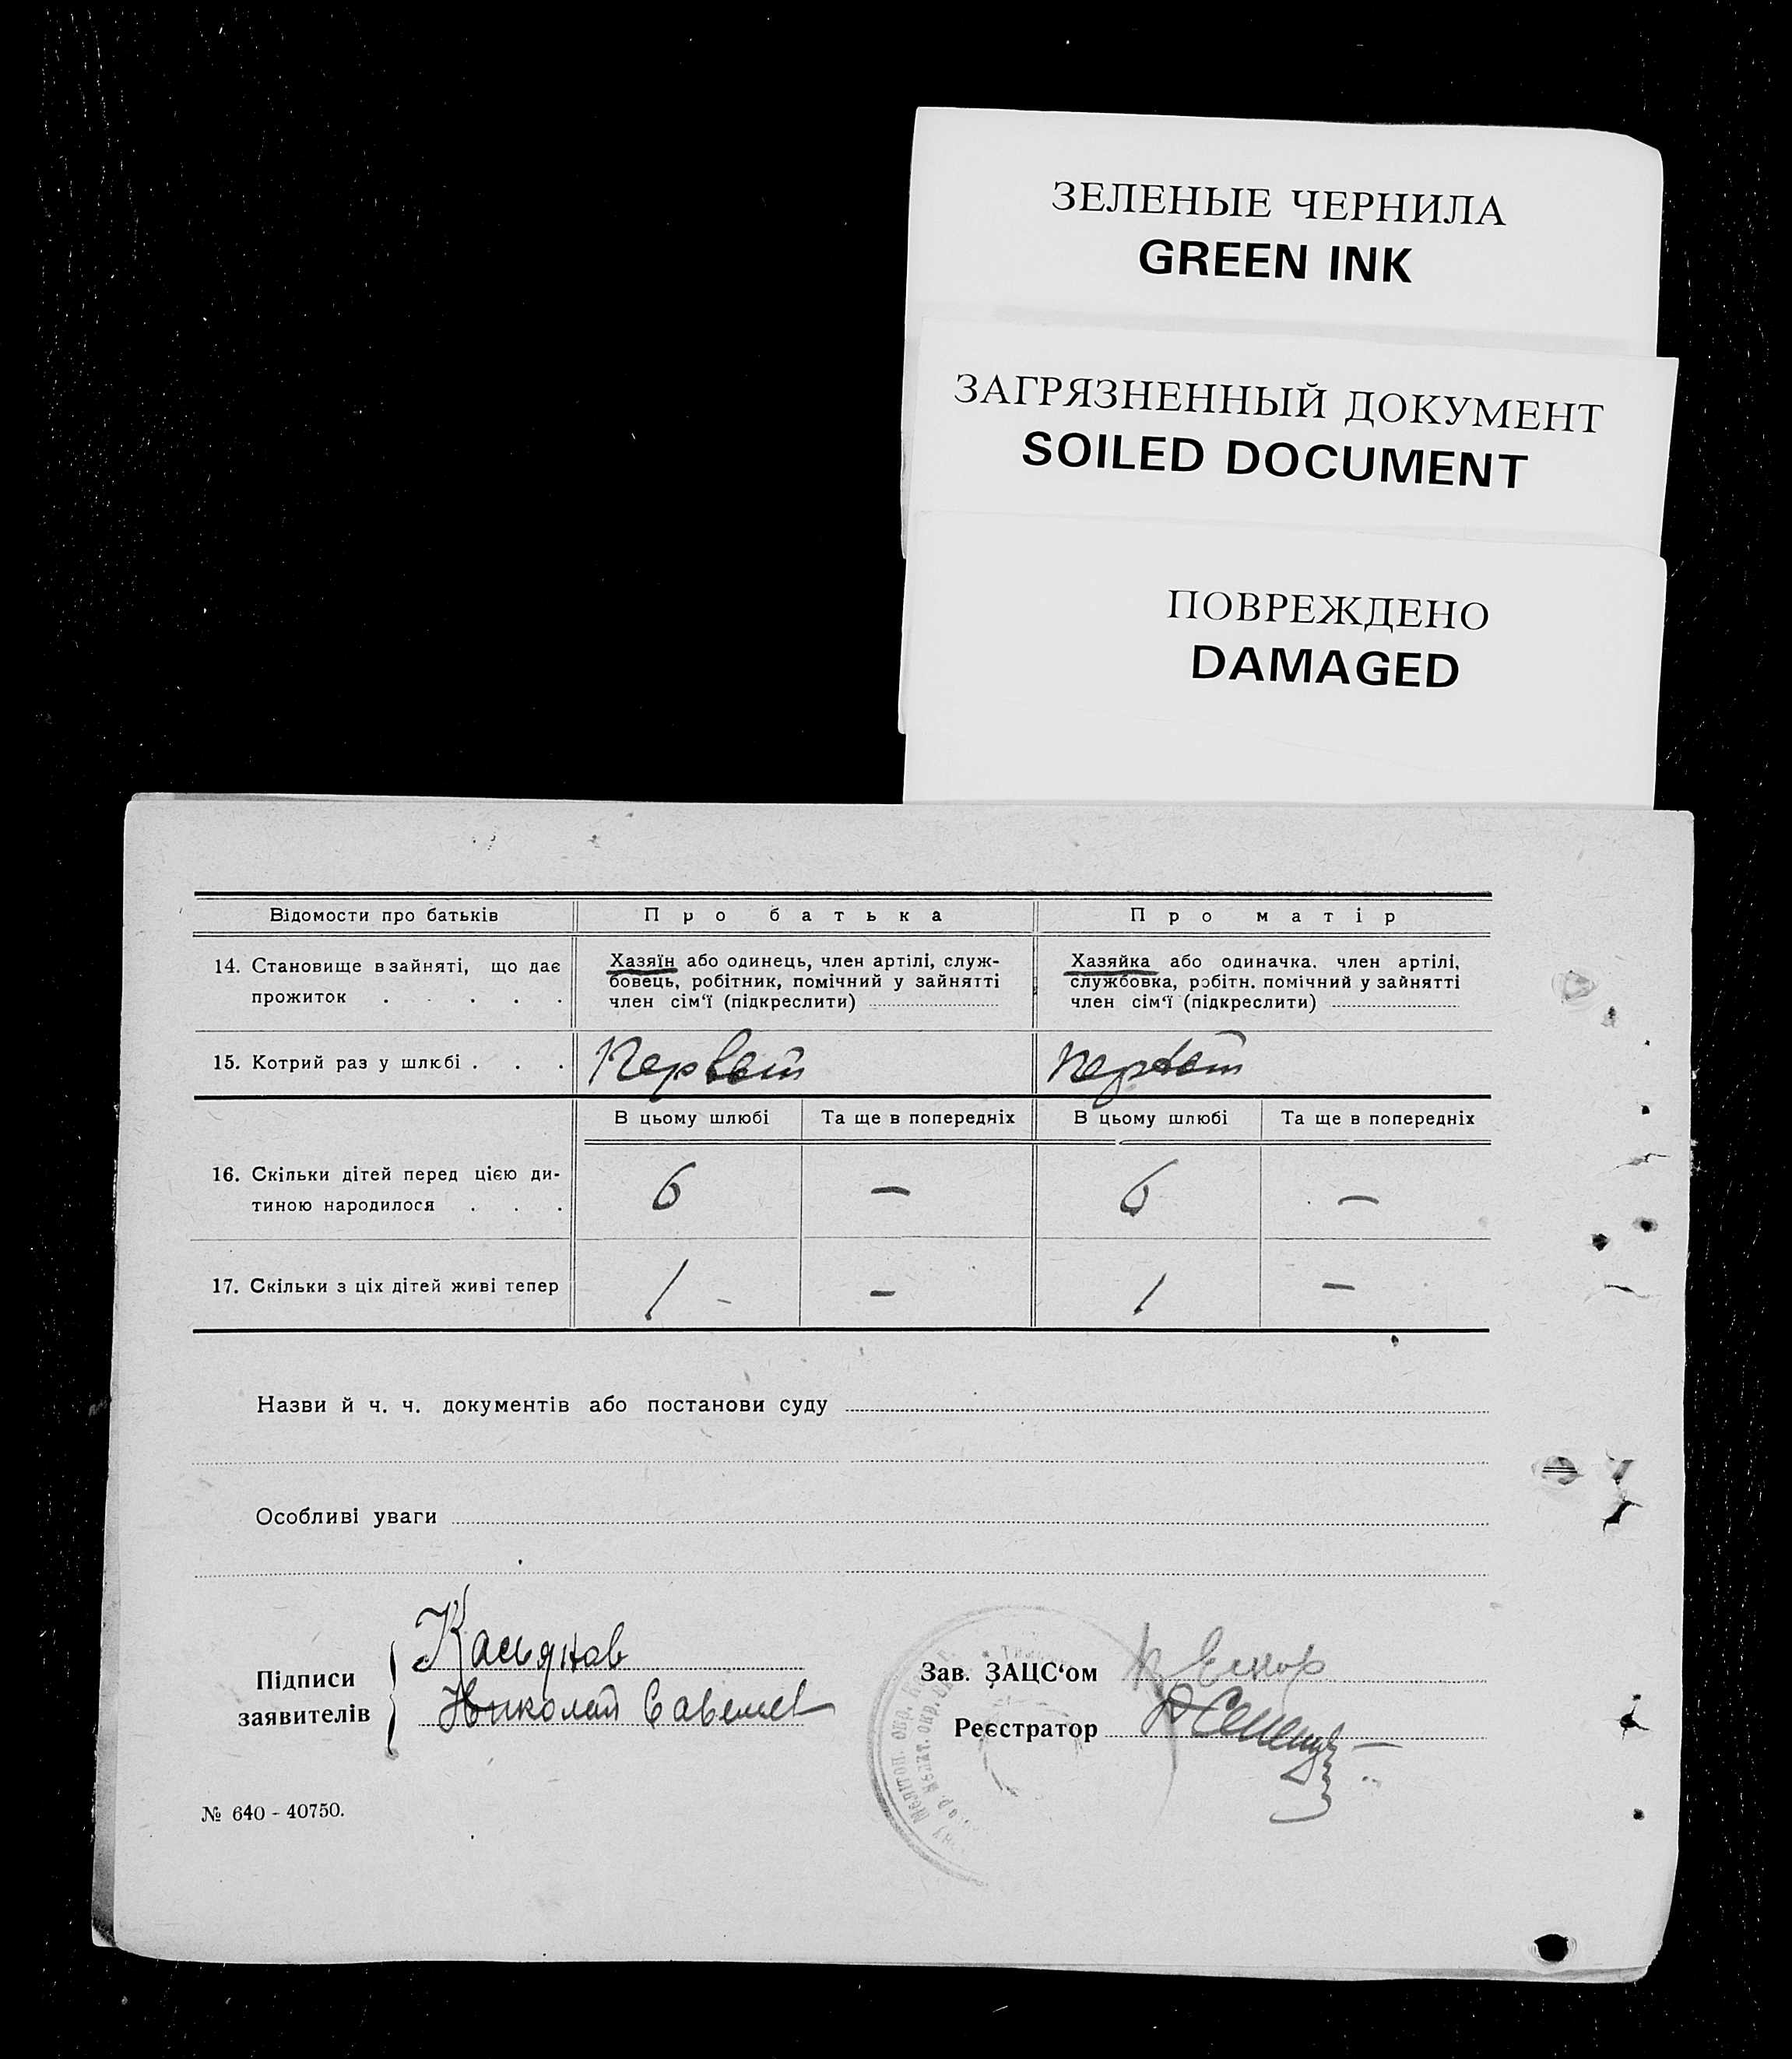 ЗЕЛЕНЫЕ ЧЕРНИЛА
GREEN INK
ЗАГРЯЗНЕННЫЙ ДОКУМЕНТ
SOILED DOCUMENT
ПОВРЕЖДЕНО
DAMAGED
Відомости про батьків Про батька Про матір
14. Становище в зайняті, що дає прожиток . . . . .
Хазяїн або одинець, член артілі, служ-
бовець, робітник, помічний у зайнятті
член сім‘ї (підкреслити)
Хазяйка або одиначка. член артілі,
службовка, робітн. помічний у зайнятті
член сім‘ї (підкреслити)
15. Котрий раз у шлюбі . . . Первый Первый
В цьому шлюбі Та ще в попередніх В цьому шлюбі Та ще в попередніх
16. Скільки дітей перед цією ди-
тиною народилося . . . 6 — 6 —
17. Скільки з ціх дітей живі тепер 1 - — 1 —
Назви й ч. ч. документів або постанови суду
Особливі уваги
Підписи
заявителів
Касьянов
Николай Савелиев
Зав. ЗАЦС‘ом
Реєстратор
№ 640 - 40750.